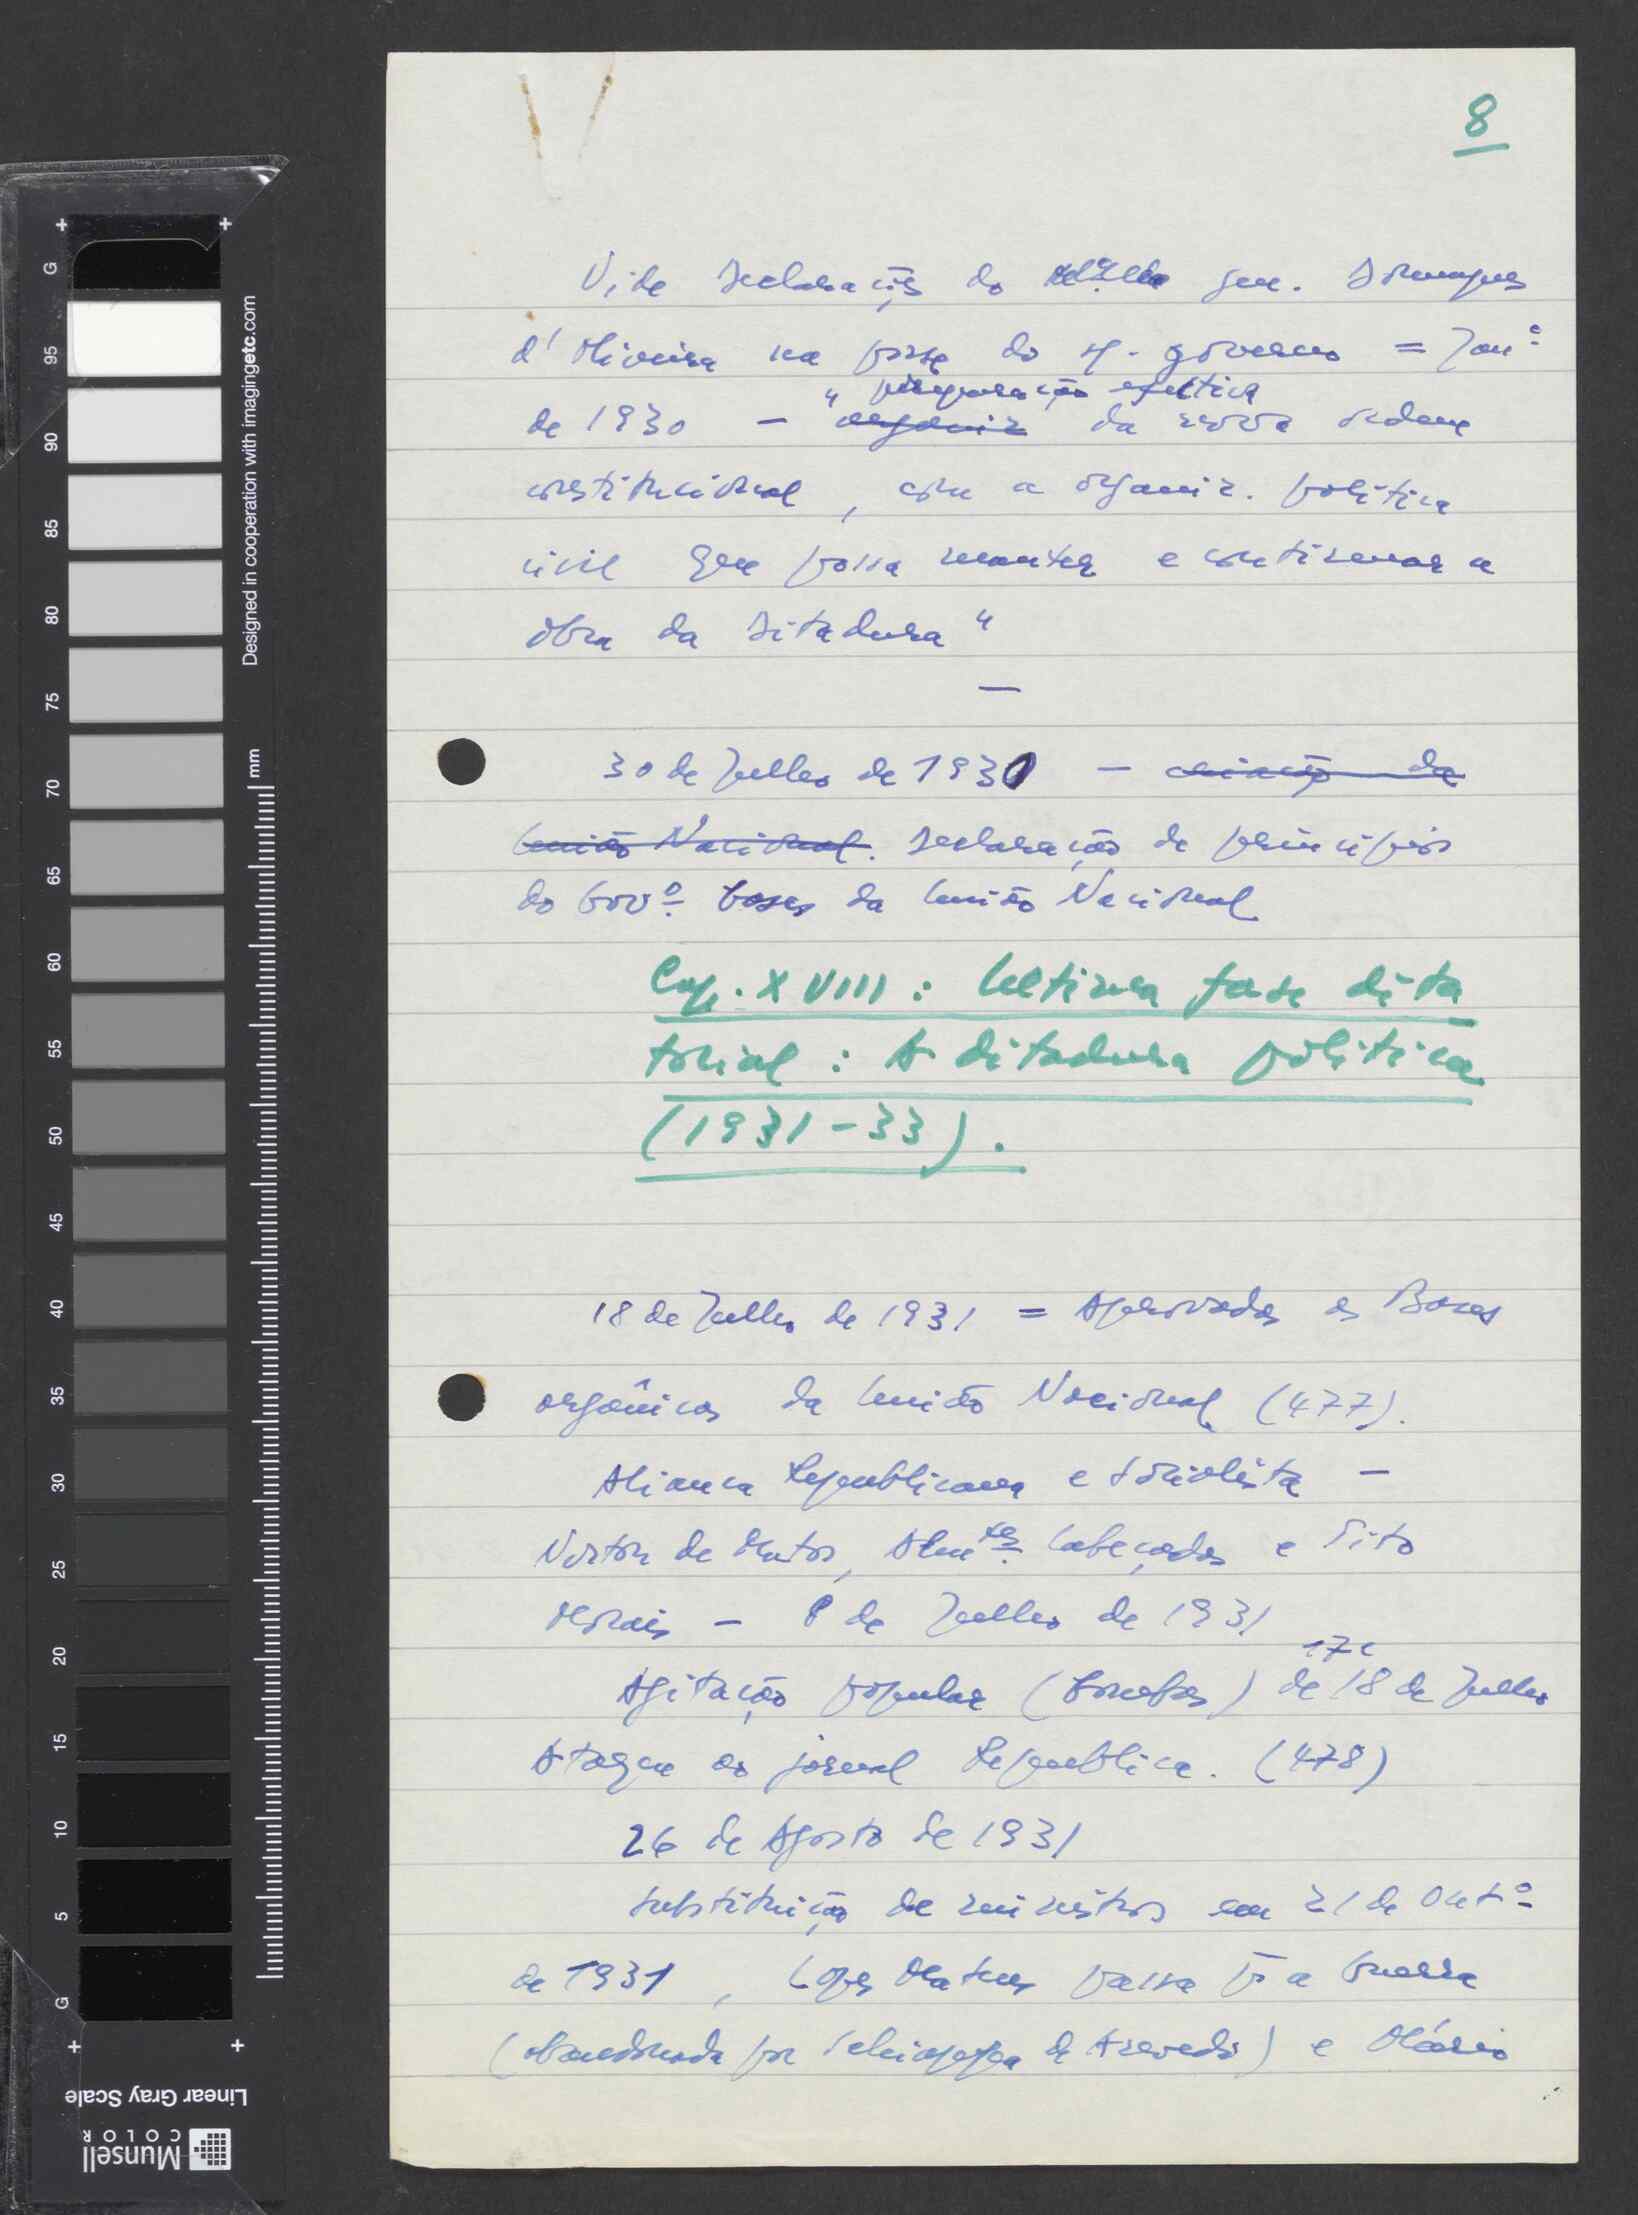 8
Vide declaração do gen. Domingues
d'Oliveira na posse do s/. governo = Janº
de 1930 - "organiz preparação efectiva da nova ordem
constitucional, com a organiz. política
civil que possa manter e continuar a
obra da Ditadura"
—
30 de Julho de 1930 - criação da
União Nacional. Declaração de princípios
do Govº. bases da União Nacional
Cap. XVIII: Ultima fase dita
torial: A ditadura política
(1931-33).
18 de Julho de 1931 = Aprovadas as Bases
orgânicas da União Nacional (477).
Aliança Republicana e Socialista -
Norton de Matos, Almte. Cabeçadas e Tito
Morais - 8 de Julho de 1931
Agitação popular (bombas) de 17 e 18 de Julho
Ataque ao jornal República. (478)
26 de Agosto de 1931
Substituição de ministros em 21 de Outº
de 1931, Lopes Mateus passa pª a Guerra
(abandonada por Schiappa de Azevedo) e Mário
Designed in cooperation with imagingetc.com
mm
G 95 90 85 80 75 70 65 60 55 50 45 40 35 30 25 20 15 10 5 G
Linear Gray Scale
Munsell
COLOR